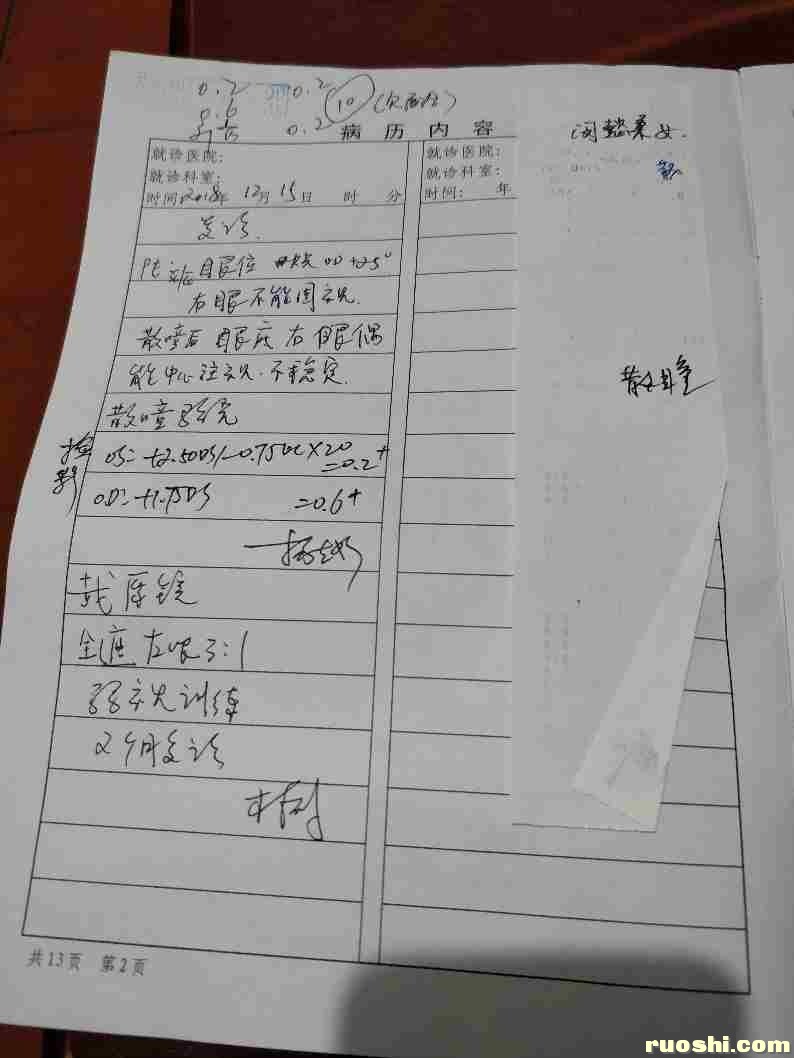 0.2 0.2
0.6 10
0.2
病历内容
就诊医院:
就诊科室:
时间2018年12月15日 时 分
复诊.
PE 眼位 OD +25°
右眼不能固视.
散瞳后 眼底 右眼偶
能中心注视.不稳定.
散瞳验光
OS: +2.50DS/-0.75DC×20
=0.2+
OD: +1.75DS =0.6+
戴原镜
全遮左眼3:1
弱视训练
2个月复诊
共13页 第2页
就诊医院:
就诊科室:
时间: 年
散瞳
ruoshi.com